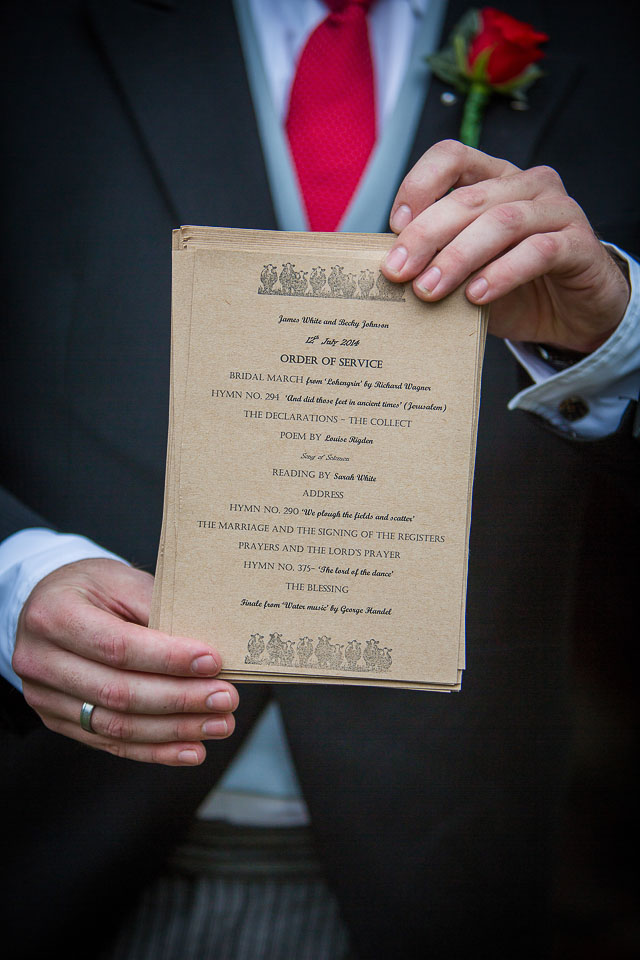 James White and Becky Johnson
12th July 2014
ORDER OF SERVICE
BRIDAL MARCH from 'Lohengrin' by Richard Wagner
HYMN NO. 294 'And did those feet in ancient times' (Jerusalem)
THE DECLARATIONS – THE COLLECT
POEM BY Louise Rigden
Song of Solomon
READING BY Sarah White
ADDRESS
HYMN NO. 290 'We plough the fields and scatter'
THE MARRIAGE AND THE SIGNING OF THE REGISTERS
PRAYERS AND THE LORD'S PRAYER
HYMN NO. 375– 'The lord of the dance'
THE BLESSING
Finale from 'Water music' by George Handel